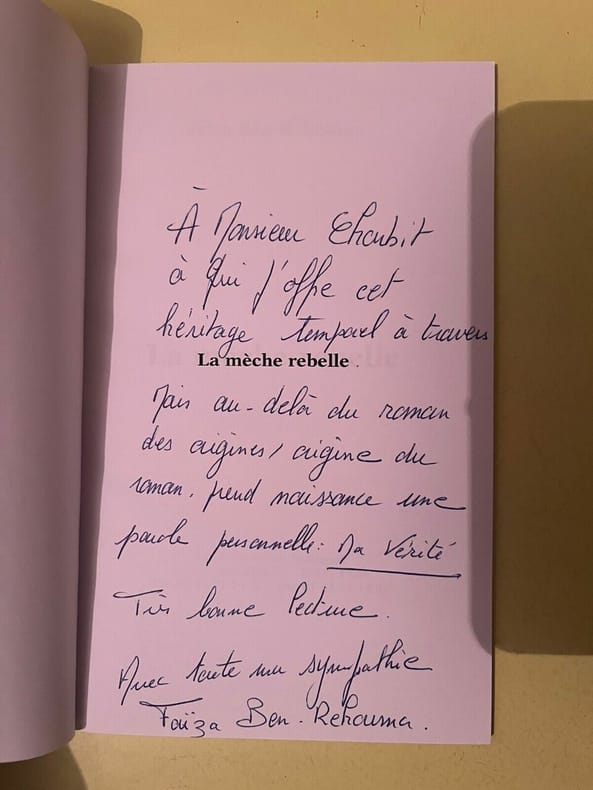 À Monsieur Choubit
à Qui j'offre cet
héritage temporel à travers
La mèche rebelle.
Mais au-delà du roman
des origines/ origine du
roman. prend naissance une
parole personnelle: Ma Vérité
Très bonne lecture.
Avec toute ma sympathie
Faïza Ben-Rehouma.